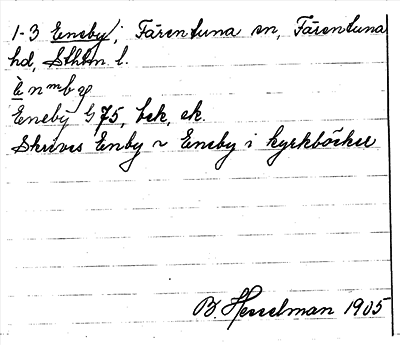 1-3 Eneby; Färentuna sn, Färentuna
hd, Sthlm l.
Eneby G 75, bek, ek.
Skrives Enby ~ Eneby i kyrkböcker
B Hesselman 1905